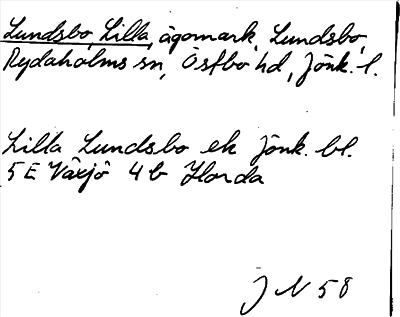 Lundsbo, Lilla, ägomark, Lundsbo,
Rydaholms sn, Östbo hd, Jönk. l.
Lilla Lundsbo ek Jönk. bl.
5 E Växjö 4 b Horda
J N 58